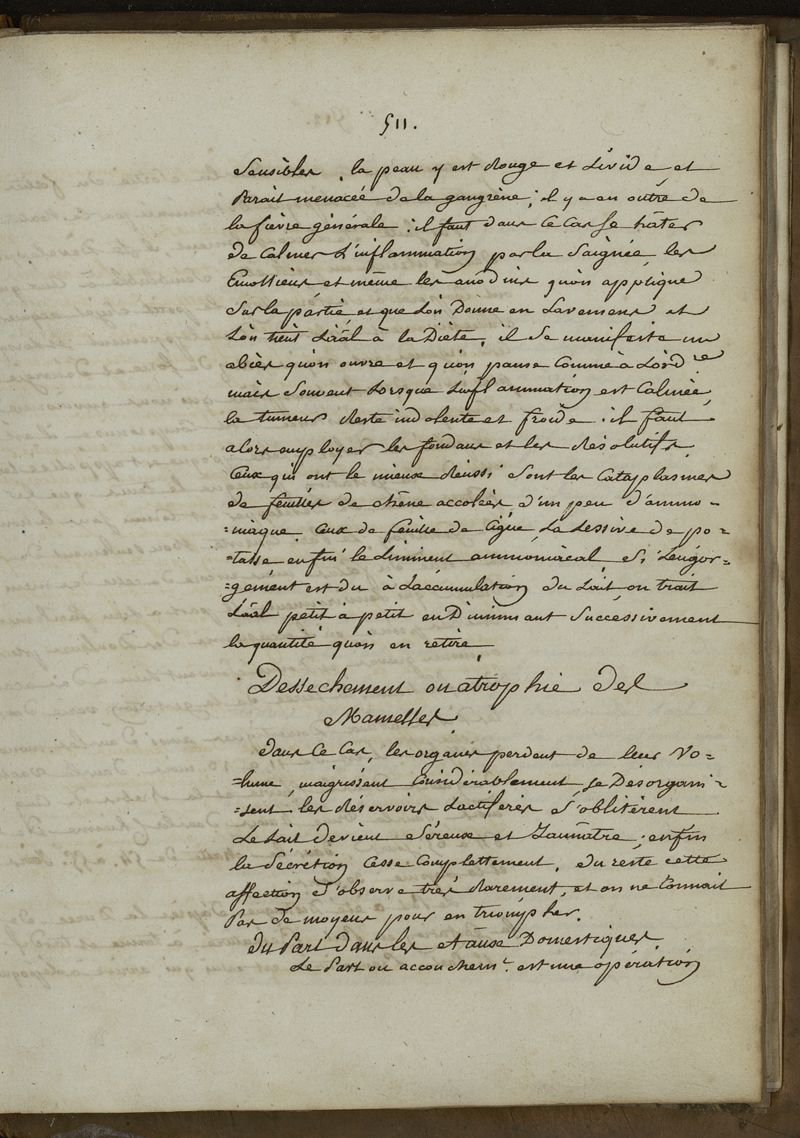 511.
Sensibles, la peau y est Rouge et Livide et
Parait menacée de la gangrène; il y a en outre de
la fievre générale: il faut dans ce cas se hâter
de Calmer L'inflammation par la Saignée, les
Emollients et même les anodins qu'on applique
Sur la partie, et que L'on Donne en Lavemens et
L'on tient L'aâl à la Diète, il se manifeste un
abcès qu'on ouvre et qu'on panse Comme à L'ord.re
mais Souvent Lorsque L'inflammation est Calmée,
la tumeur Reste indolente et froide: il faut
alors employer les fondans et les Résolutifs.
Ceux qui ont le mieux Réussi sont les Cataplasmes
de feuilles de chêne accolées d'un peu d'ammo-
=niaque, Ceux de feuille de Cigüe, La Lessive de po-
=tasse, enfin le Liniment ammoniacal, Si L'engor-
=gement est du à L'accumulation du Lait, on trait
L'aâl petit à petit en Diminuant Successivement
la quantité qu'on en retire.
Dessechement ou atrophie des
Mamelles.
Dans Ce Cas, les organes perdent de leur Vo=
=lume, maigrissent Considérablement se Desorgani-
=sent les Réservoirs Lactiferes S'oblitèrent
Le Lait devient Séreuse et Jaunâtre, enfin
la Sécrétion Cesse Complettement, du reste cette
affection S'observe très Rarement, et on ne Connait
Pas de moyens pour en triompher.
Du Part dans les Domestiques.
Le Part ou accouchem.t est une opération